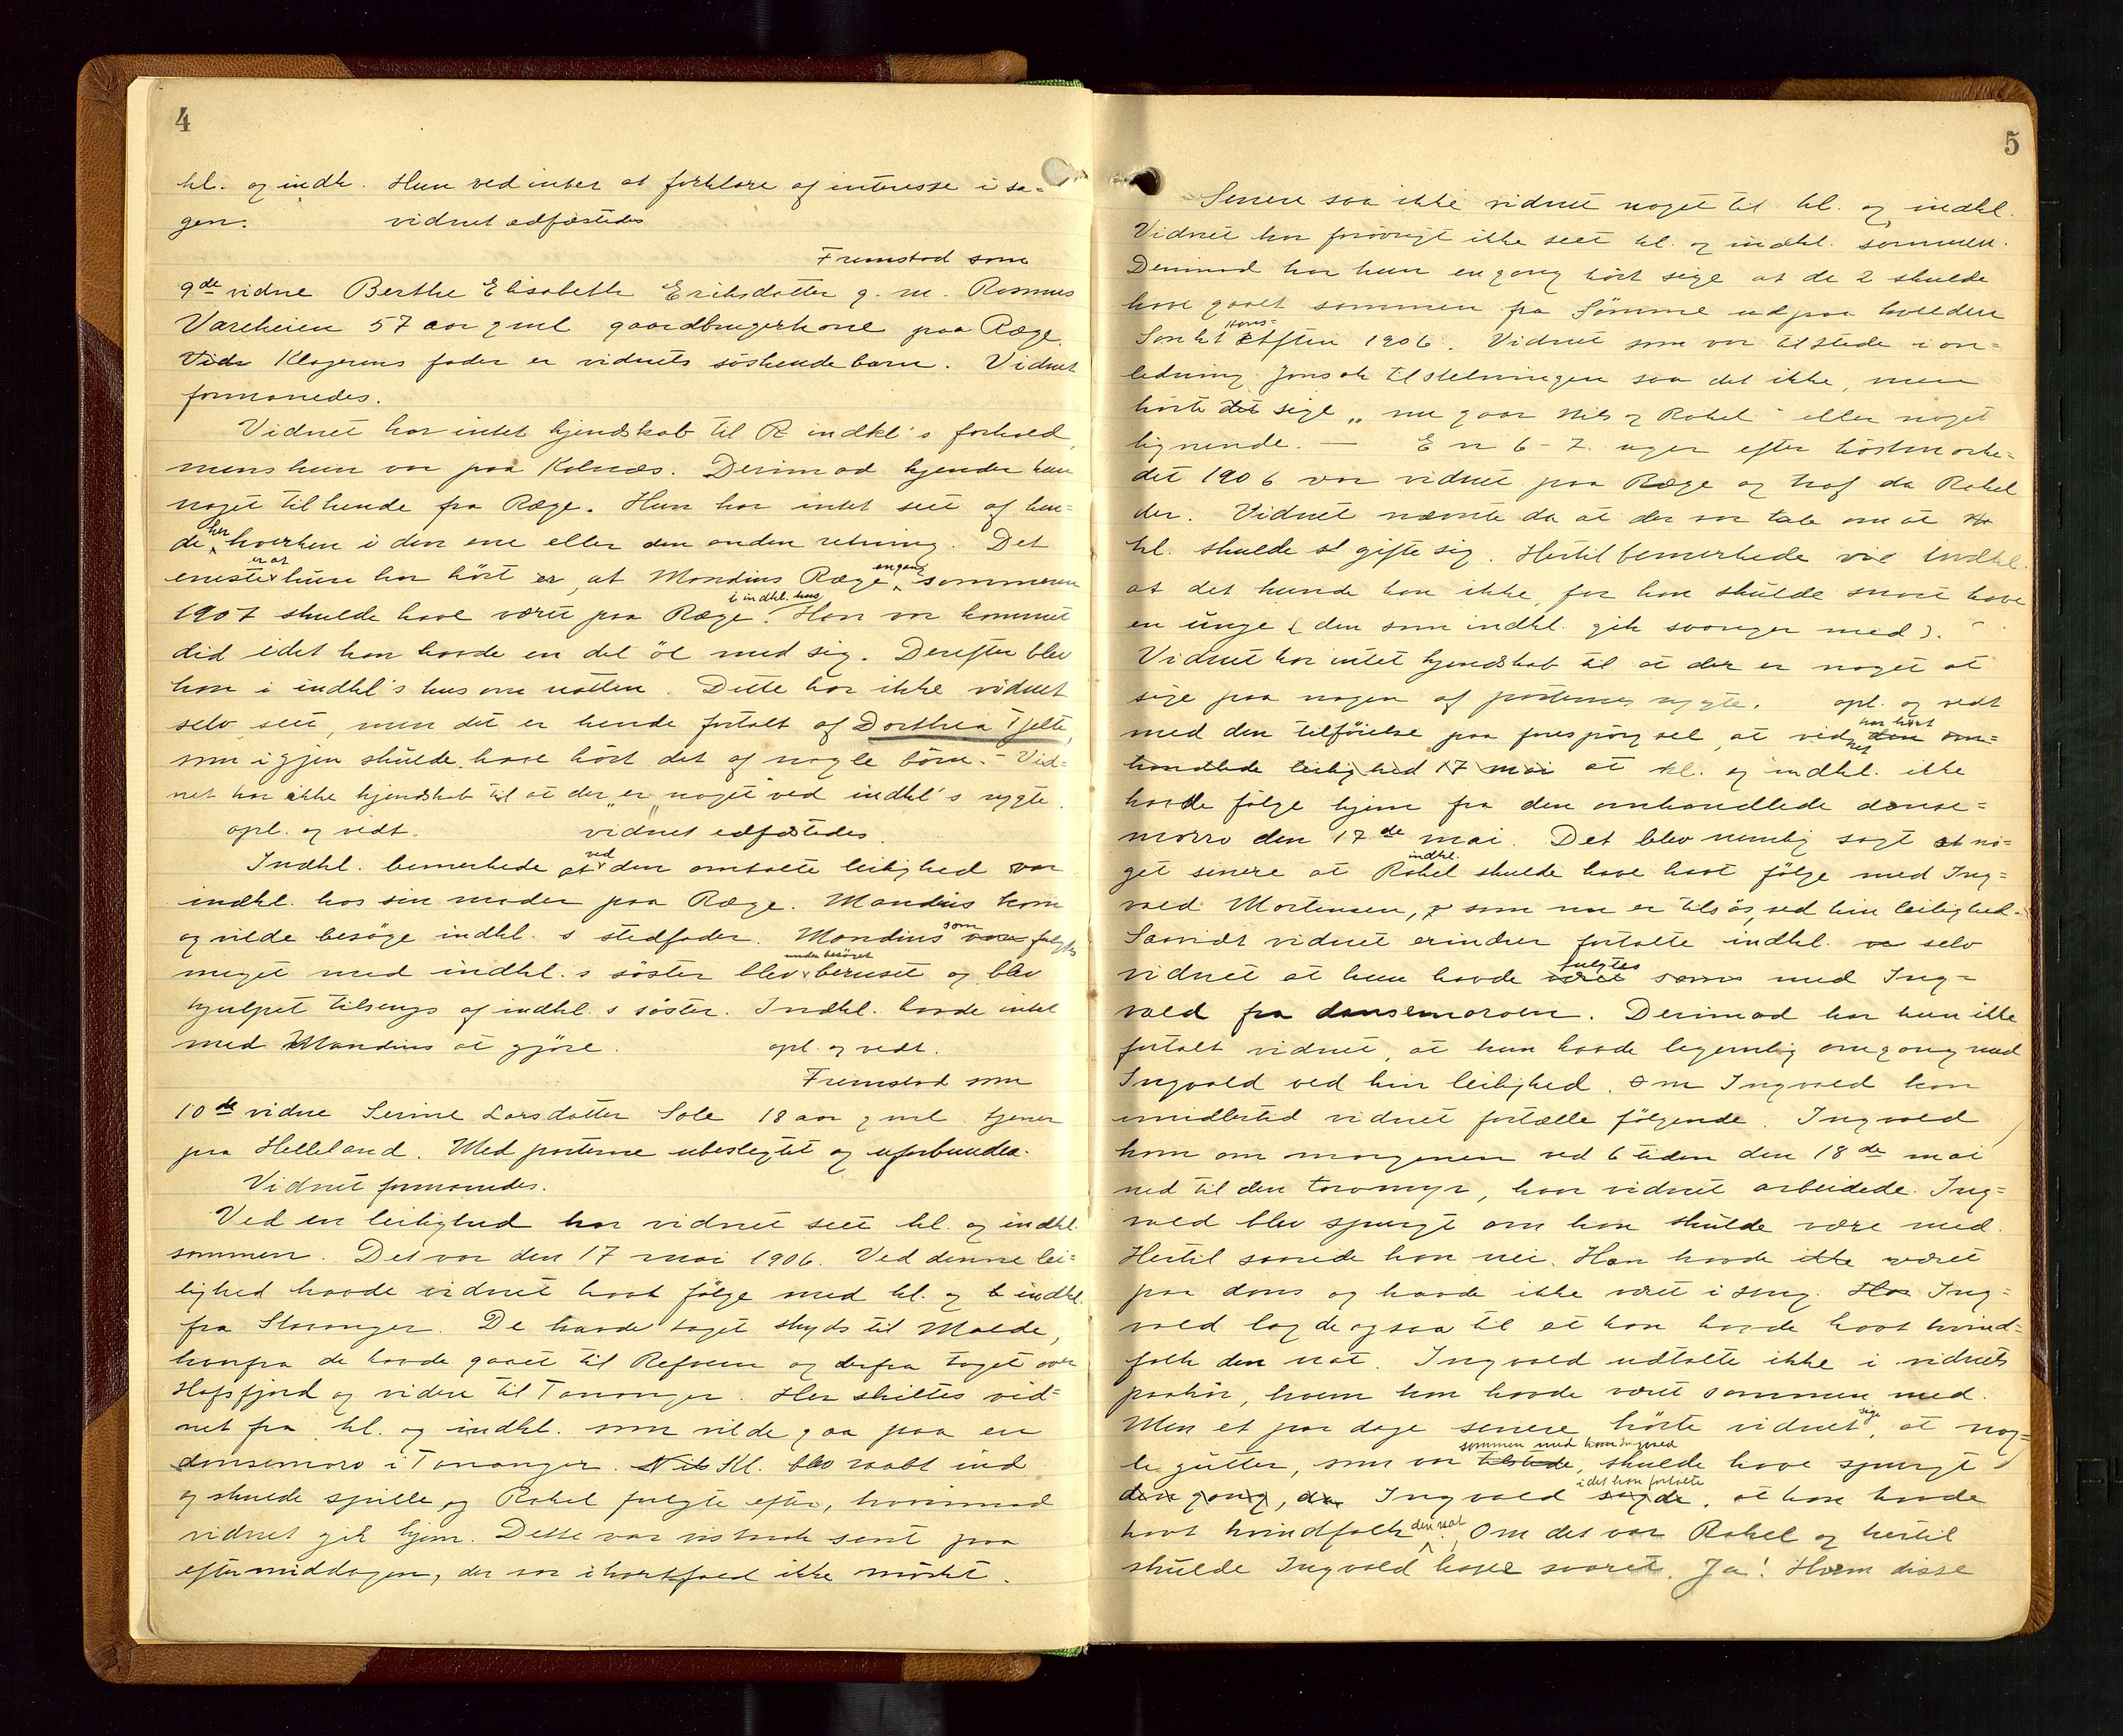 4
kl. og indk. Hun ved intet at forklare af interesse i sa-
gen. vidnet edfæstedes
Fremstod som
9de vidne Berthe Elisabeth Eriksdatter g. m. Rasmus
Vareheien 57 aar gml gaardbrugerkone paa Ræge.
Vidn Klagerens fader er vidnets söskendebarn. Vidnet
formanedes.
Vidnet har intet kjendskab til R indkl's forhold,
mens hun var paa Kolnæs. Derimod kjender hun
noget til hende fra Ræge. Hun har intet seet af hen-
de her hverken i den ene eller den anden retning. Det
eneste er at hun har hört er, at Mandius Ræge engang sommeren
1907 skulde have været paa Ræge i indkl. hus. Han var kommet
did idet han havde en del öl med sig. Derefter blev
han i indkl's hus om natten. Dette har ikke vidnet
selv seet, men det er hende fortalt af Dorthea Tjelta,
som igjen skulde have hört det af nogle börn. - Vid-
net har ikke kjendskab til at der "er" noget ved indkl's rygte.
opl. og vedt. vidnet edfæstedes.
Indkl. bemerkede at ved den omtalte leilighed var
indkl. hos sin moder paa Ræge. Mandius kom
og vilde besöge indkl.s stedfader. Mandius som var fulgte
meget med indkl.s söster blev under besöget beruset og blev
hjulpet tilsengs af indkl.s söster. Indkl. havde intet
med Mandius at gjöre. opl. og vedt.
Fremstod som
10de vidne Serine Larsdatter Sole 18 aar gml. tjener
paa Helleland. Med parterne ubeslegtet og uforbunden.
Vidnet formanedes.
Ved en leilighed har vidnet seet kl. og indkl.
sammen. Det var den 17 mai 1906. Ved denne lei-
lighed havde vidnet havt fölge med kl. og indkl.
fra Stavanger. De havde taget skyds til Malde,
hvorfra de havde gaaet til Refsnes og derfra taget over
Hafsfjord og videre til Tananger. Her skiltes vid-
net fra kl. og indkl. som vilde gaa paa en
dansemoro i Tananger. Nils Kl. blev raabt ind
og skulde spille og Rakel fulgte efter, hvorimod
vidnet gik hjem. Dette var vistnok sent paa
eftermiddagen, der var ihvertfald ikke mörkt.
5
Senere saa ikke vidnet noget til kl. og indkl.
Vidnet har forövrigt ikke seet kl. og indkl. sammen.
Derimod har hun engang hört sige at de 2 skulde
have gaaet sammen fra Sömme udpaa kvelden
Sankt Hans- Aften 1906. Vidnet som var tilstede i an-
ledning Jonsok tilstelningen saa det ikke, men
hörte det sige "nu gaar Nils og Rakel" eller noget
lignende. — En 6-7 uger efter höstmarke-
det 1906 var vidnet paa Ræge og traf da Rakel
der. Vidnet nævnte da at der var tale om at
kl. skulde gifte sig. Hertil bemerkede indkl.
at det kunde han ikke, for han skulde snart have
en unge (den som indkl. gik svanger med).
Vidnet har intet kjendskab til at der er noget at
sige paa nogen af parternes rygte. opl. og vedt
med den tilföielse paa forespörgsel, at vidnet har hört den om-
handlede leilighed 17 mai at kl. og indkl. ikke
havde fölge hjem fra den omhandlede danse-
morro den 17de mai. Det blev nemlig sagt at no-
get senere at indkl. Rakel skulde have havt fölge med Ing-
vald Mortensen, som nu er tilsös, ved hin leilighed.
Saavidt vidnet erindrer fortalte indkl. selv
vidnet at hun havde været fulgtes sam med Ing-
vald fra dansemoroen. Derimod har hun ikke
fortalt vidnet, at hun havde legemlig omgang med
Ingvald ved hin leilighed. Om Ingvald kan
imidlertid vidnet fortælle fölgende. Ingvald
kom om morgenen ved 6 tiden den 18de mai
ned til den torvmyr, hvor vidnet arbeidede. Ing-
vald blev spurgt om han skulde være med.
Hertil svarede han nei. Han havde ikke været
paa dans og havde ikke været i seng. Han Ing-
vald lagde ogsaa til at han havde havt kvind-
folk den nat. Ingvald udtalte ikke i vidnets
paahör, hvem han havde været sammen med.
Men et par dage senere hörte vidnet sige, at nog-
le gutter, som var tilstede sammen med ham Ingvald, skulde have spurgt
den gang, da Ingvald sagde i det han fortalte, at han havde
havt kvindfolk den nat, Om det var Rakel og hertil
skulde Ingvald have svaret. Ja! Hvem disse